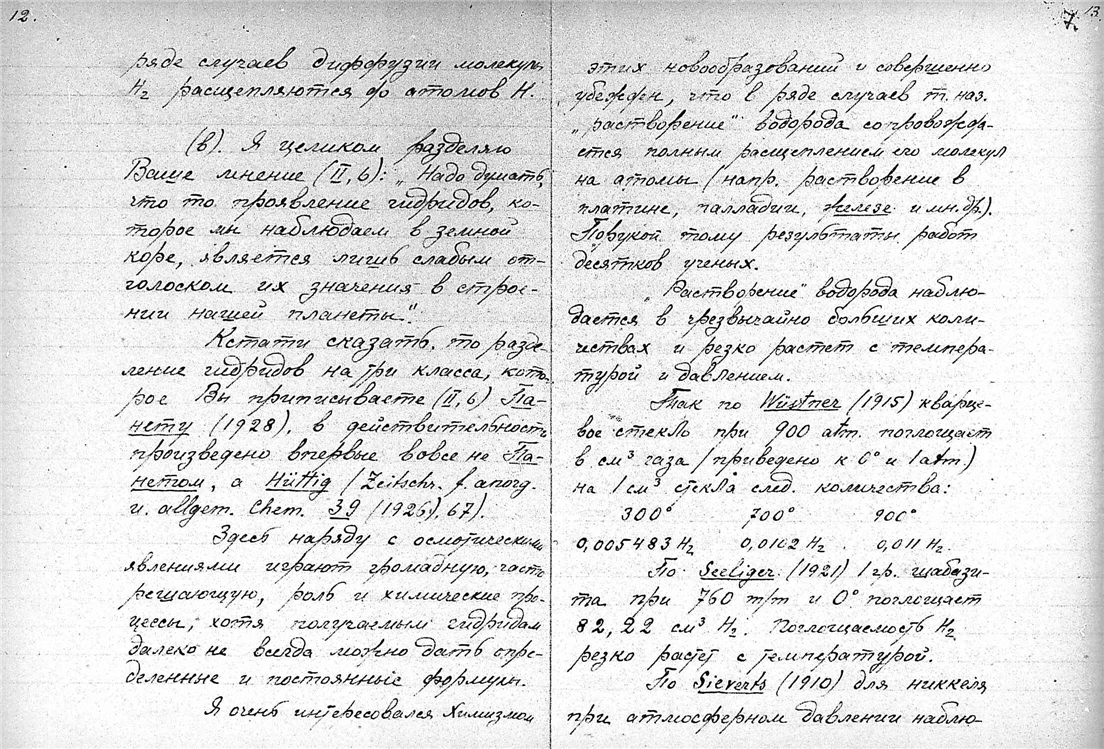 12.
ряде случаев диффузии молекулы
H₂ расщепляются до атомов H.
(в). Я целиком разделяю
Ваше мнение (II, 6): „Надо думать,
что то проявление гидридов, ко-
торое мы наблюдаем в земной
коре, является лишь слабым от-
голоском их значения в строе-
нии нашей планеты".
Кстати сказать, то разде-
ление гидридов на три класса, кото-
рое Вы приписываете (II, 6) Па-
нету (1928), в действительность
произведено впервые вовсе не Па-
нетом, а Hüttig (Zeitschr. f. anorg.
u. allgem. Chem. 39 (1926), 67).
Здесь наряду с осмотическими
явлениями играют громадную, часто
решающую, роль и химические про-
цессы, хотя получаемым гидридам
далеко не всегда можно дать опре-
деленные и постоянные формулы.
Я очень интересовался химизмом
7. 13.
этих новообразований и совершенно
убежден, что в ряде случаев т. наз.
„растворение" водорода сопровожда-
ется полным расщеплением его молекул
на атомы (напр. растворение в
платине, палладии, железе и мн. др.).
Порукой тому результаты работ
десятков ученых.
„Растворение" водорода наблю-
дается в чрезвычайно больших коли-
чествах и резко растет с темпера-
турой и давлением.
Так по Wüstner (1915) кварце-
вое стекло при 900 atm. поглощает
в см³ газа (приведено к 0° и 1 atm.)
на 1 см³ стекла след. количества:
300° 700° 900°
0,005483 H₂ 0,0102 H₂ 0,011 H₂.
По Seeliger (1921) 1 гр. шабази-
та при 760 m/m и 0° поглощает
82,22 см³ H₂. Поглощаемость H₂
резко растет с температурой.
По Sieverts (1910) для никкеля
при атмосферном давлении наблю-